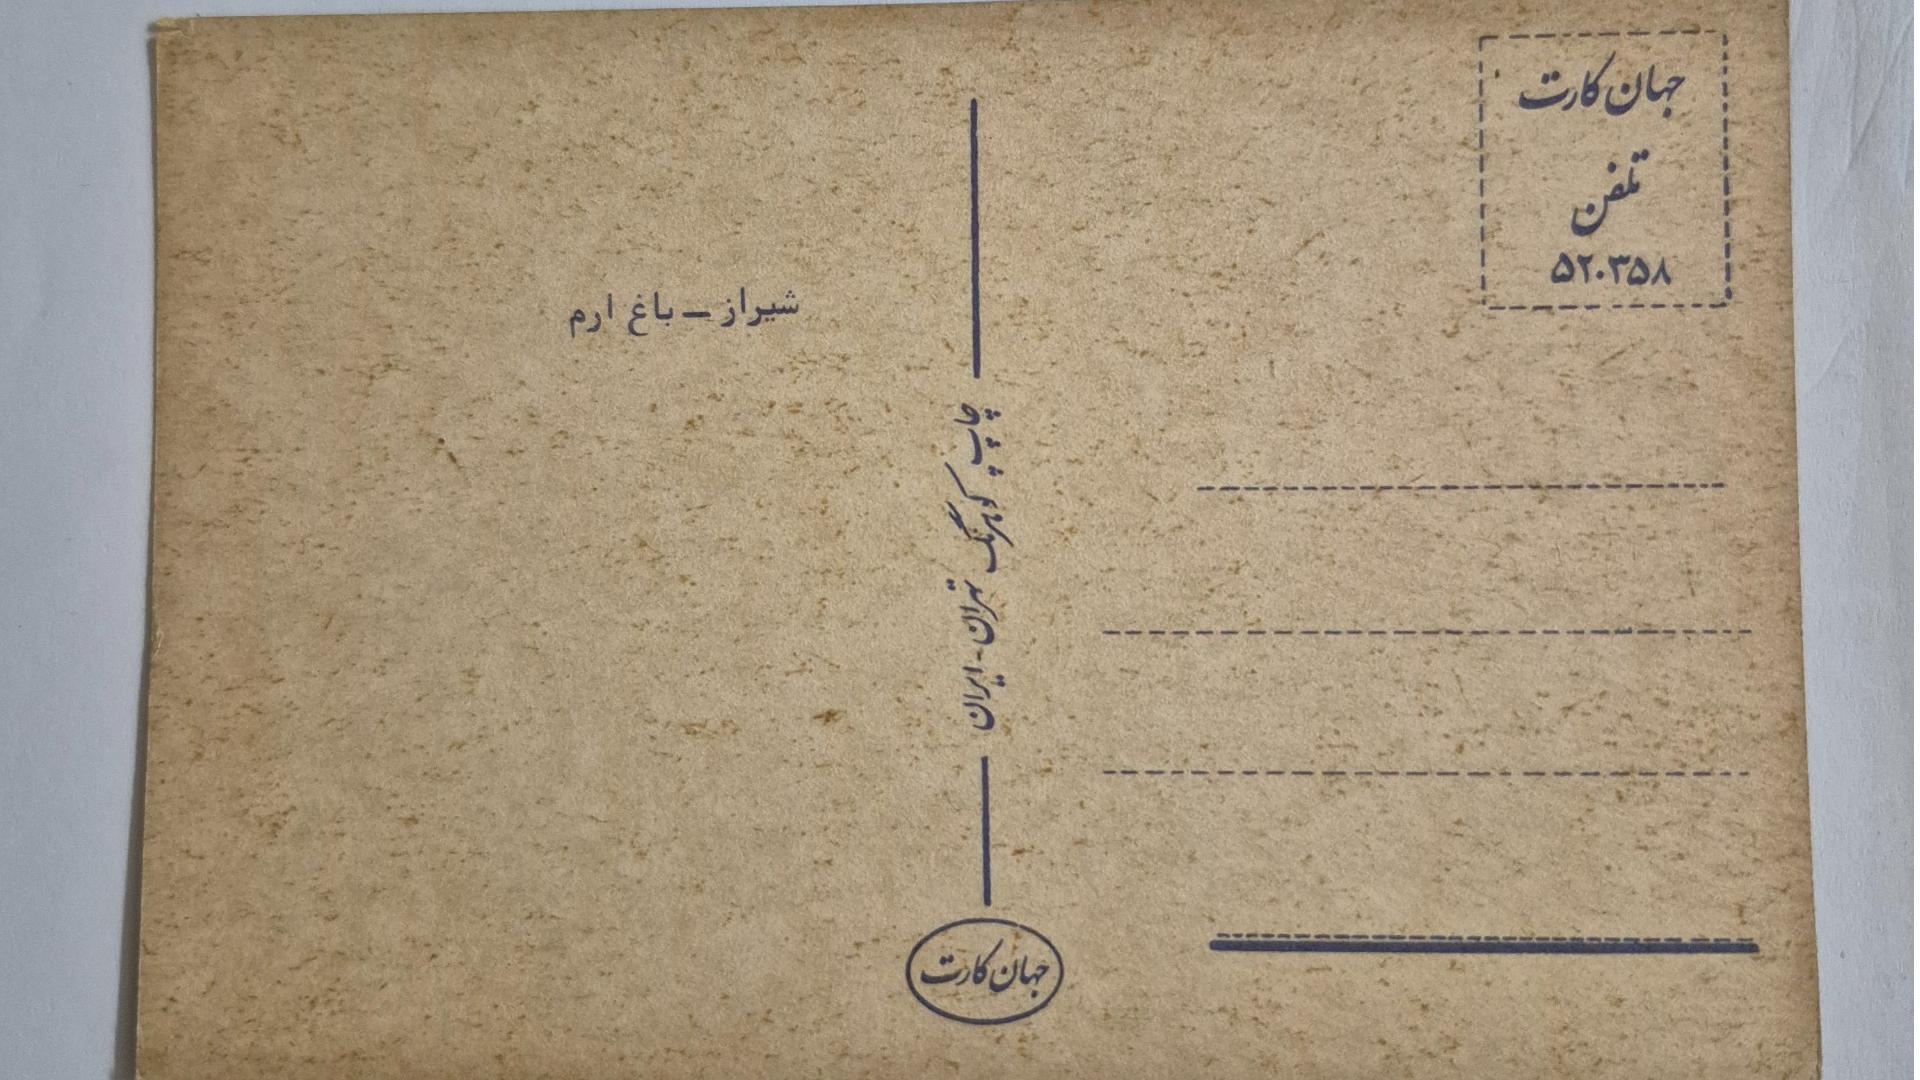 جهان کارت
تلفن
۵۲۰۳۵۸
شیراز – باغ ارم
چاپ کوهرنگ تهران-ایران
جهان کارت